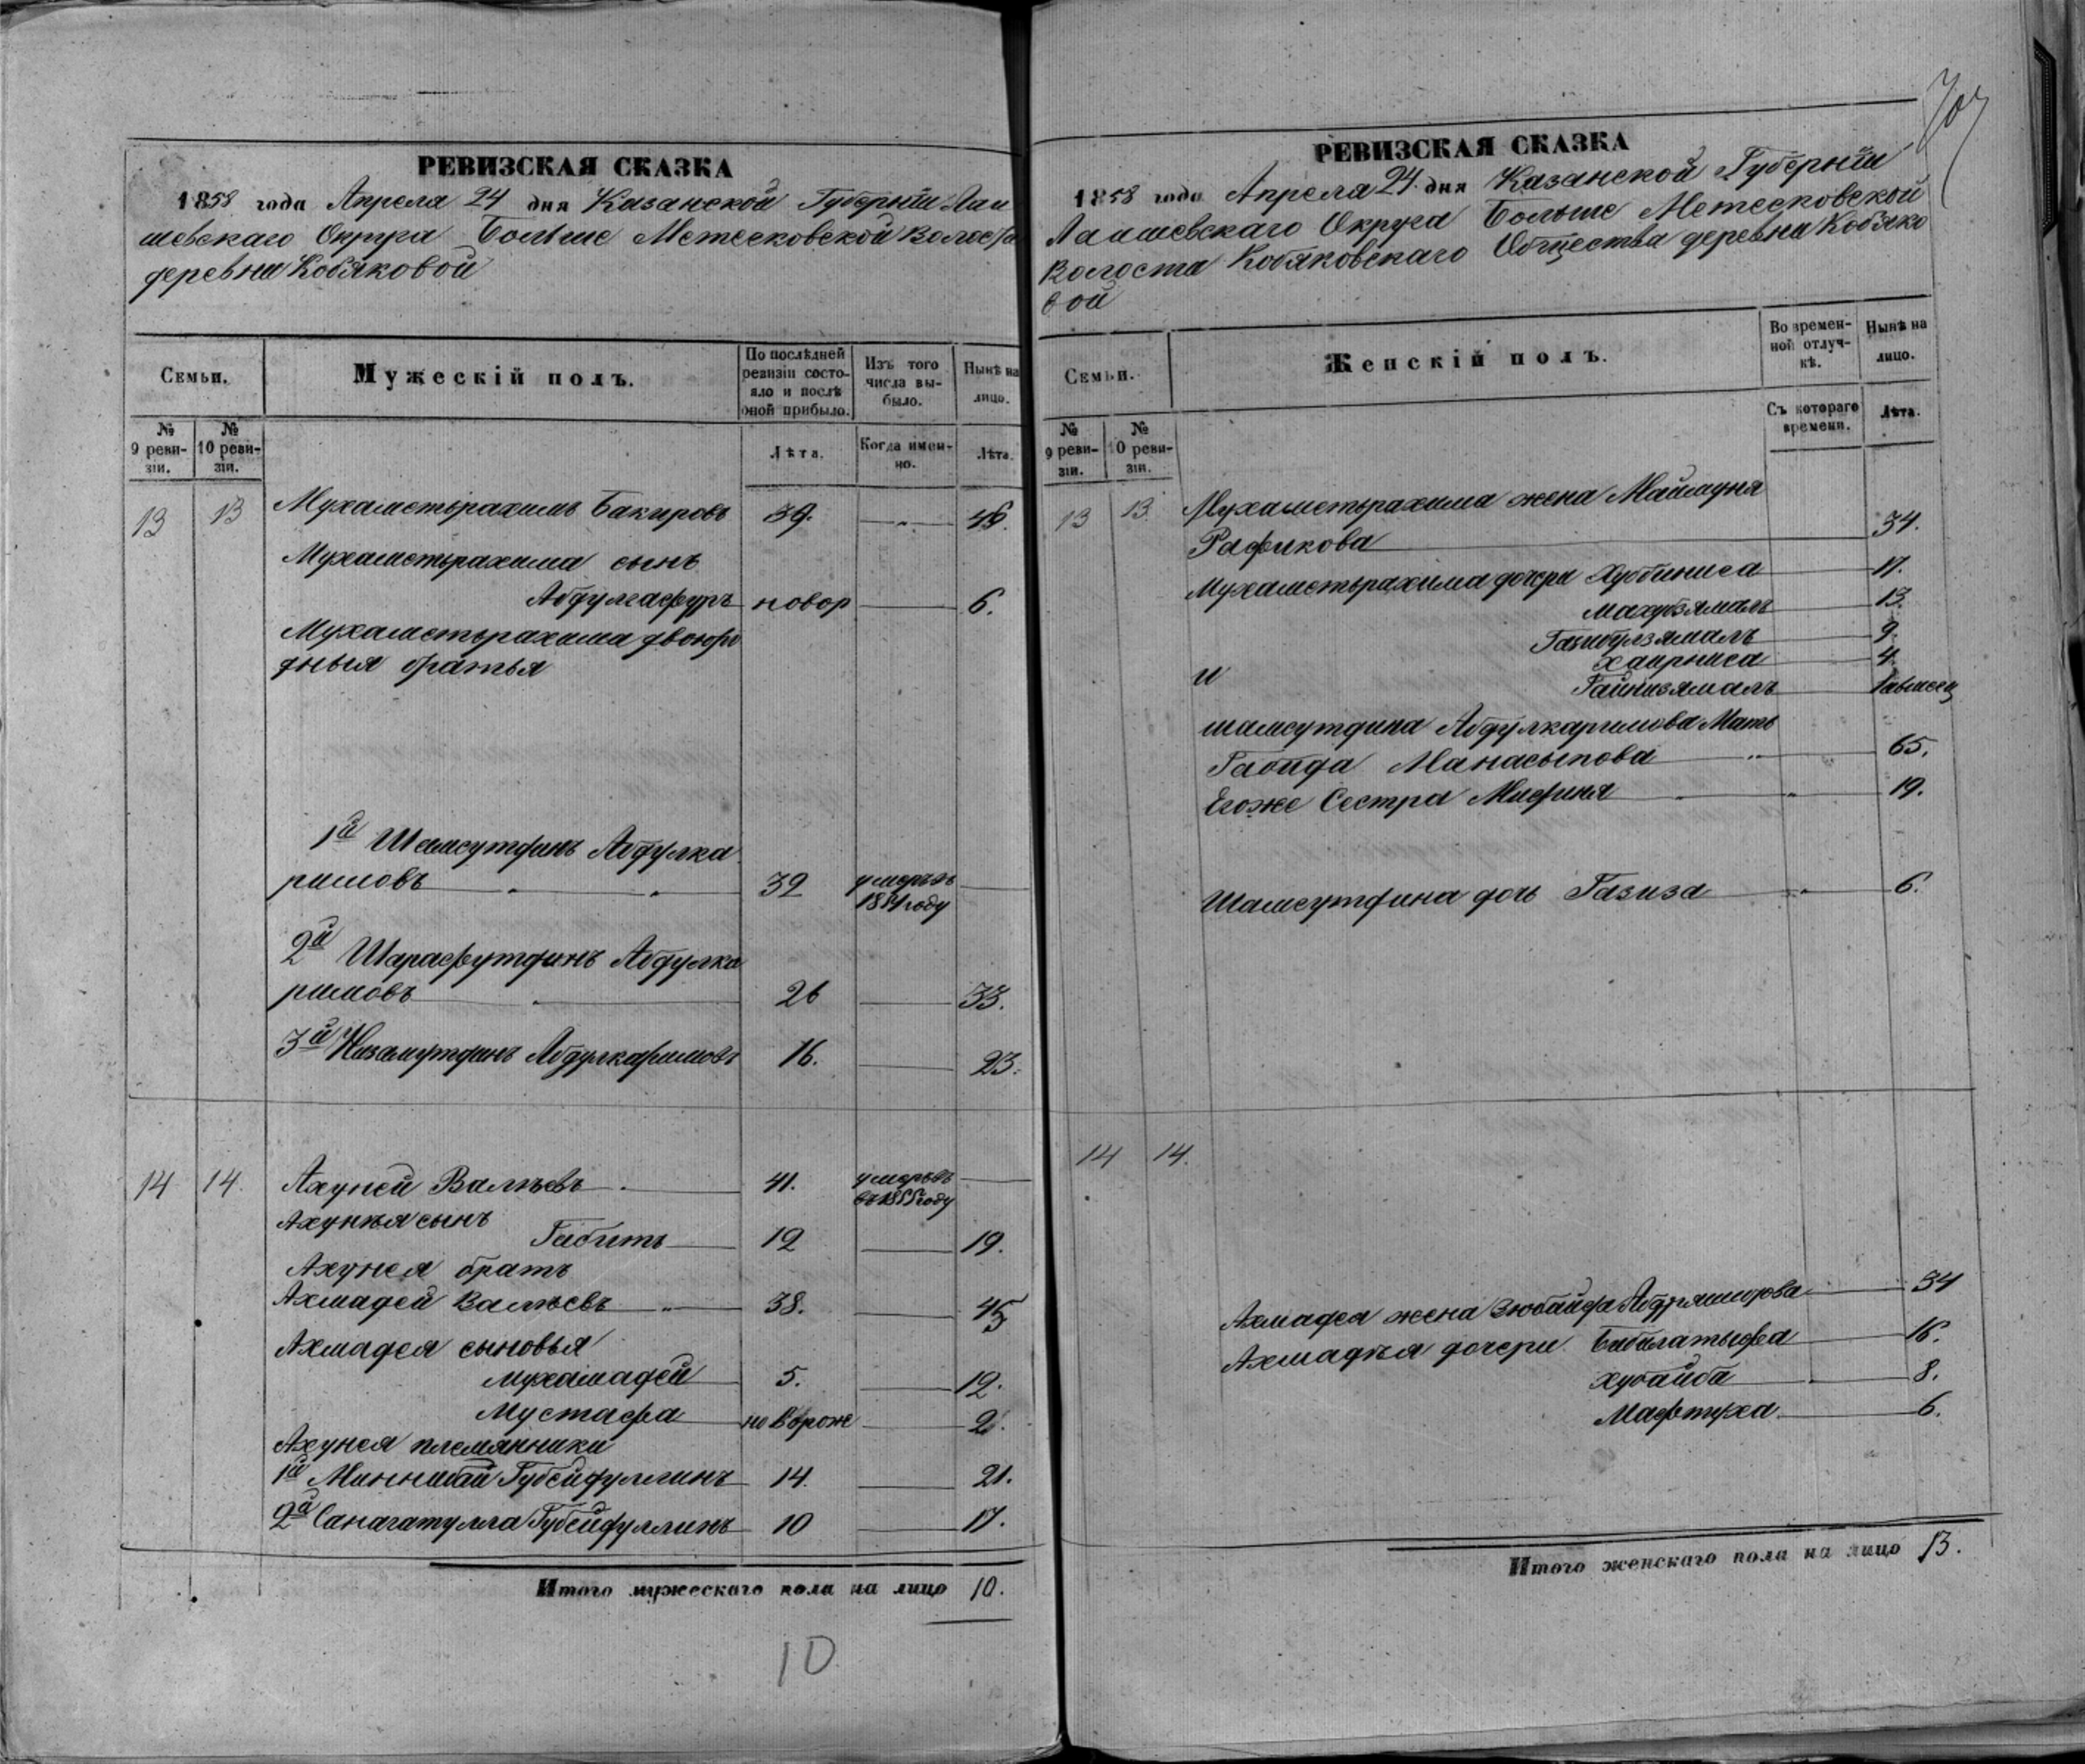 РЕВИЗСКАЯ СКАЗКА
1858 года Апреля 24 дня Казанской Губерніи Лаи
шевскаго Округа Больше Метесковской волости
деревни Кобяковой
Семьи.
Мужескій полъ.
По послѣдней ревизіи состояло и послѣ оной прибыло.
Изъ того числа выбыло.
Нынѣ на лицо.
№ 9 ревизіи.
№ 10 ревизіи.
Лѣта.
Когда именно.
Лѣта.
13 13 Мухаметьрахимъ Бакировъ 39. 46.
Мухаметьрахима сынъ
Абдулгафуръ новор 6.
Мухаметьрахима двоюро
дныя братья
1й Шамсутдинъ Абдулка
римовъ 32 умеръ въ
1854 году
2й Шарафутдинъ Абдулка
римовъ 26 33.
3й Низамутдинъ Абдулкаримовъ 16. 23.
14 14. Ахуней Валѣевъ 41. умеръ
въ 1855 году
Ахунѣя сынъ
Габитъ 12 19.
Ахунея братъ
Ахмадей Валѣевъ 38. 45
Ахмадея сыновья
Мухамадей 5. 12.
Мустафа новорож 2.
Ахунея племянники
1й Миннибай Губейдуллинъ 14. 21.
2й Санагатулла Губейдуллинъ 10 17.
Итого мужескаго пола на лицо 10.
10
РЕВИЗСКАЯ СКАЗКА
1858 года Апреля 24. дня Казанской Губерніи
Лаишевскаго Округа Больше Метесковской
волости Кобяковскаго Общества деревни Кобяко
вой
Семьи.
Женскій полъ.
Во временной отлучкѣ.
Нынѣ на лицо.
№ 9 ревизіи.
№ 10 ревизіи.
Съ котораго времени.
Лѣта.
13 13. Мухаметьрахима жена Маймуня
Рафикова 34.
Мухаметьрахима дочери Хуббиниса 17.
Махубзямалъ 13.
Газибулзямалъ 9.
Хаирниса 4.
и Гайнизямалъ
Шамсутдина Абдулкаримова Мать
Габида Манасыпова 65.
Егоже Сестра Мафиня 19.
Шамсутдина дочь Газиза 6.
14 14.
Ахмадея жена Зюбайда 34
Ахмадѣя дочери Бибилатыфа 16.
Хубайба 8.
Мафтуха 6.
Итого женскаго пола на лицо 13.